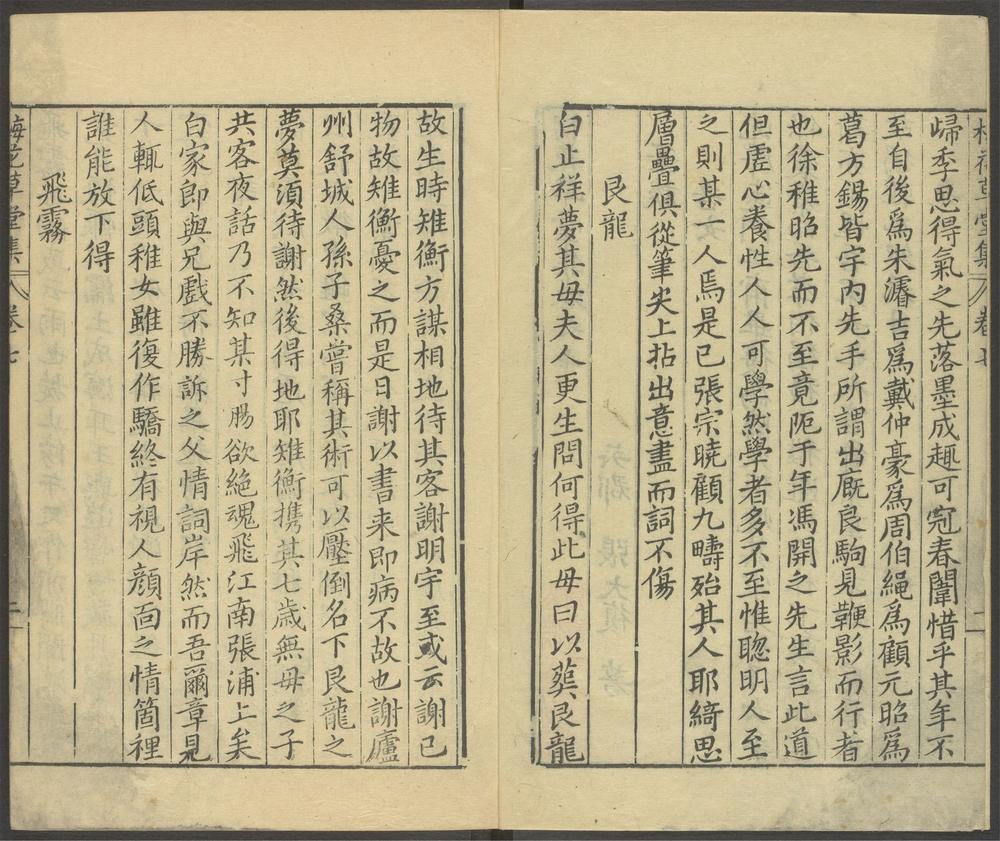 梅花草堂集 卷七 二
歸季思得氣之先落墨成趣可冠春闈惜乎其年不
至自後爲朱濳吉爲戴仲豪爲周伯繩爲顧元昭爲
葛方錫皆宇内先手所謂出廐良駒見鞭影而行者
也徐稚昭先而不至竟阨千年馮開之先生言此道
但虛心養性人人可學然學者多不至惟聦明人至
之則某一人焉是已張宗曉顧九疇殆其人耶綺思
層疊俱從筆尖上拈出意盡而詞不傷
艮龍
白止祥夢其母夫人更生問何得此母曰以塟艮龍
故生時雉衡方謀相地待其客謝明宇至或云謝已
物故雉衡憂之而是日謝以書来即病不故也謝廬
州舒城人孫子桑嘗稱其術可以壓倒名下艮龍之
夢莫須待謝然後得地耶雉衡携其七歲無母之子
共客夜話乃不知某寸腸欲絕魂飛江南張浦上矣
白家郎與兄戲不勝訴之父情詞岸然而吾爾章見
人輒低頭稚女雖復作驕終有視人顔靣之情箇裡
誰能放下得
飛霧
梅花草堂集 卷七 二